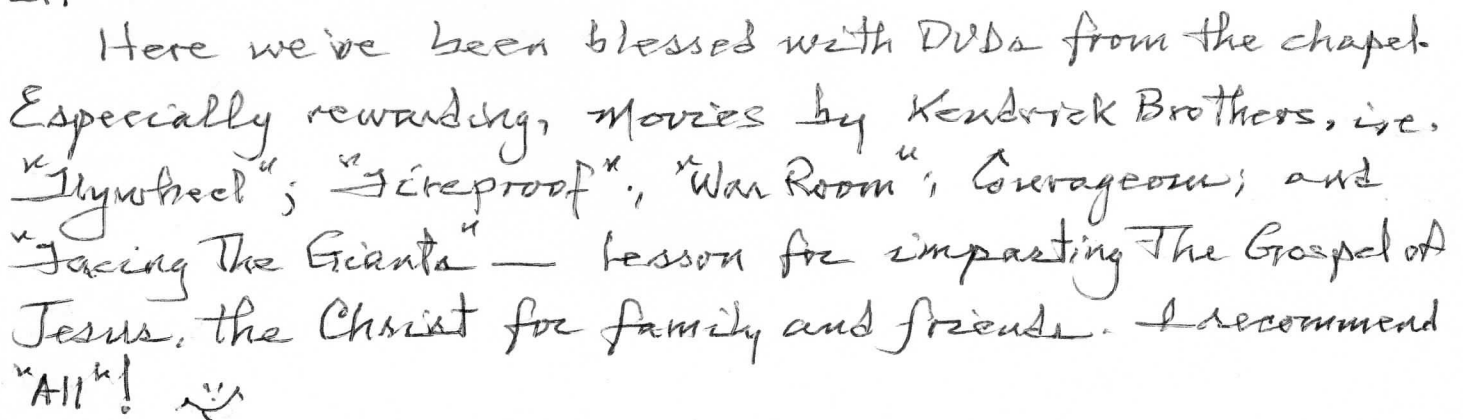 Here we've been blessed with DVDs from the chapel.
Especially rewarding, movies by Kendrick Brothers, i.e.
"Flywheel"; "Fireproof"; "War Room"; Courageous; and
"Facing The Giants" — Lesson for imparting The Gospel of
Jesus, the Christ for family and friends. I recommend
"All"!